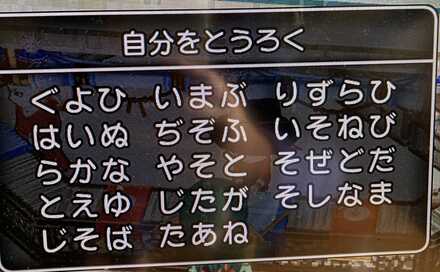 自分をとうろく
ぐよひ いまぶ りずらひ
はいぬ ぢぞふ いそねび
らかな やそと そぜどだ
とえゆ じたが そしなま
じそば たあね